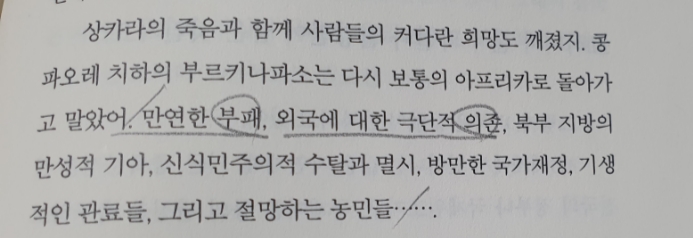 상카라의 죽음과 함께 사람들의 커다란 희망도 깨졌지. 콩
파오레 치하의 부르키나파소는 다시 보통의 아프리카로 돌아가
고 말았어. 만연한 부패, 외국에 대한 극단적 의존, 북부 지방의
만성적 기아, 신식민주의적 수탈과 멸시, 방만한 국가재정, 기생
적인 관료들, 그리고 절망하는 농민들…….